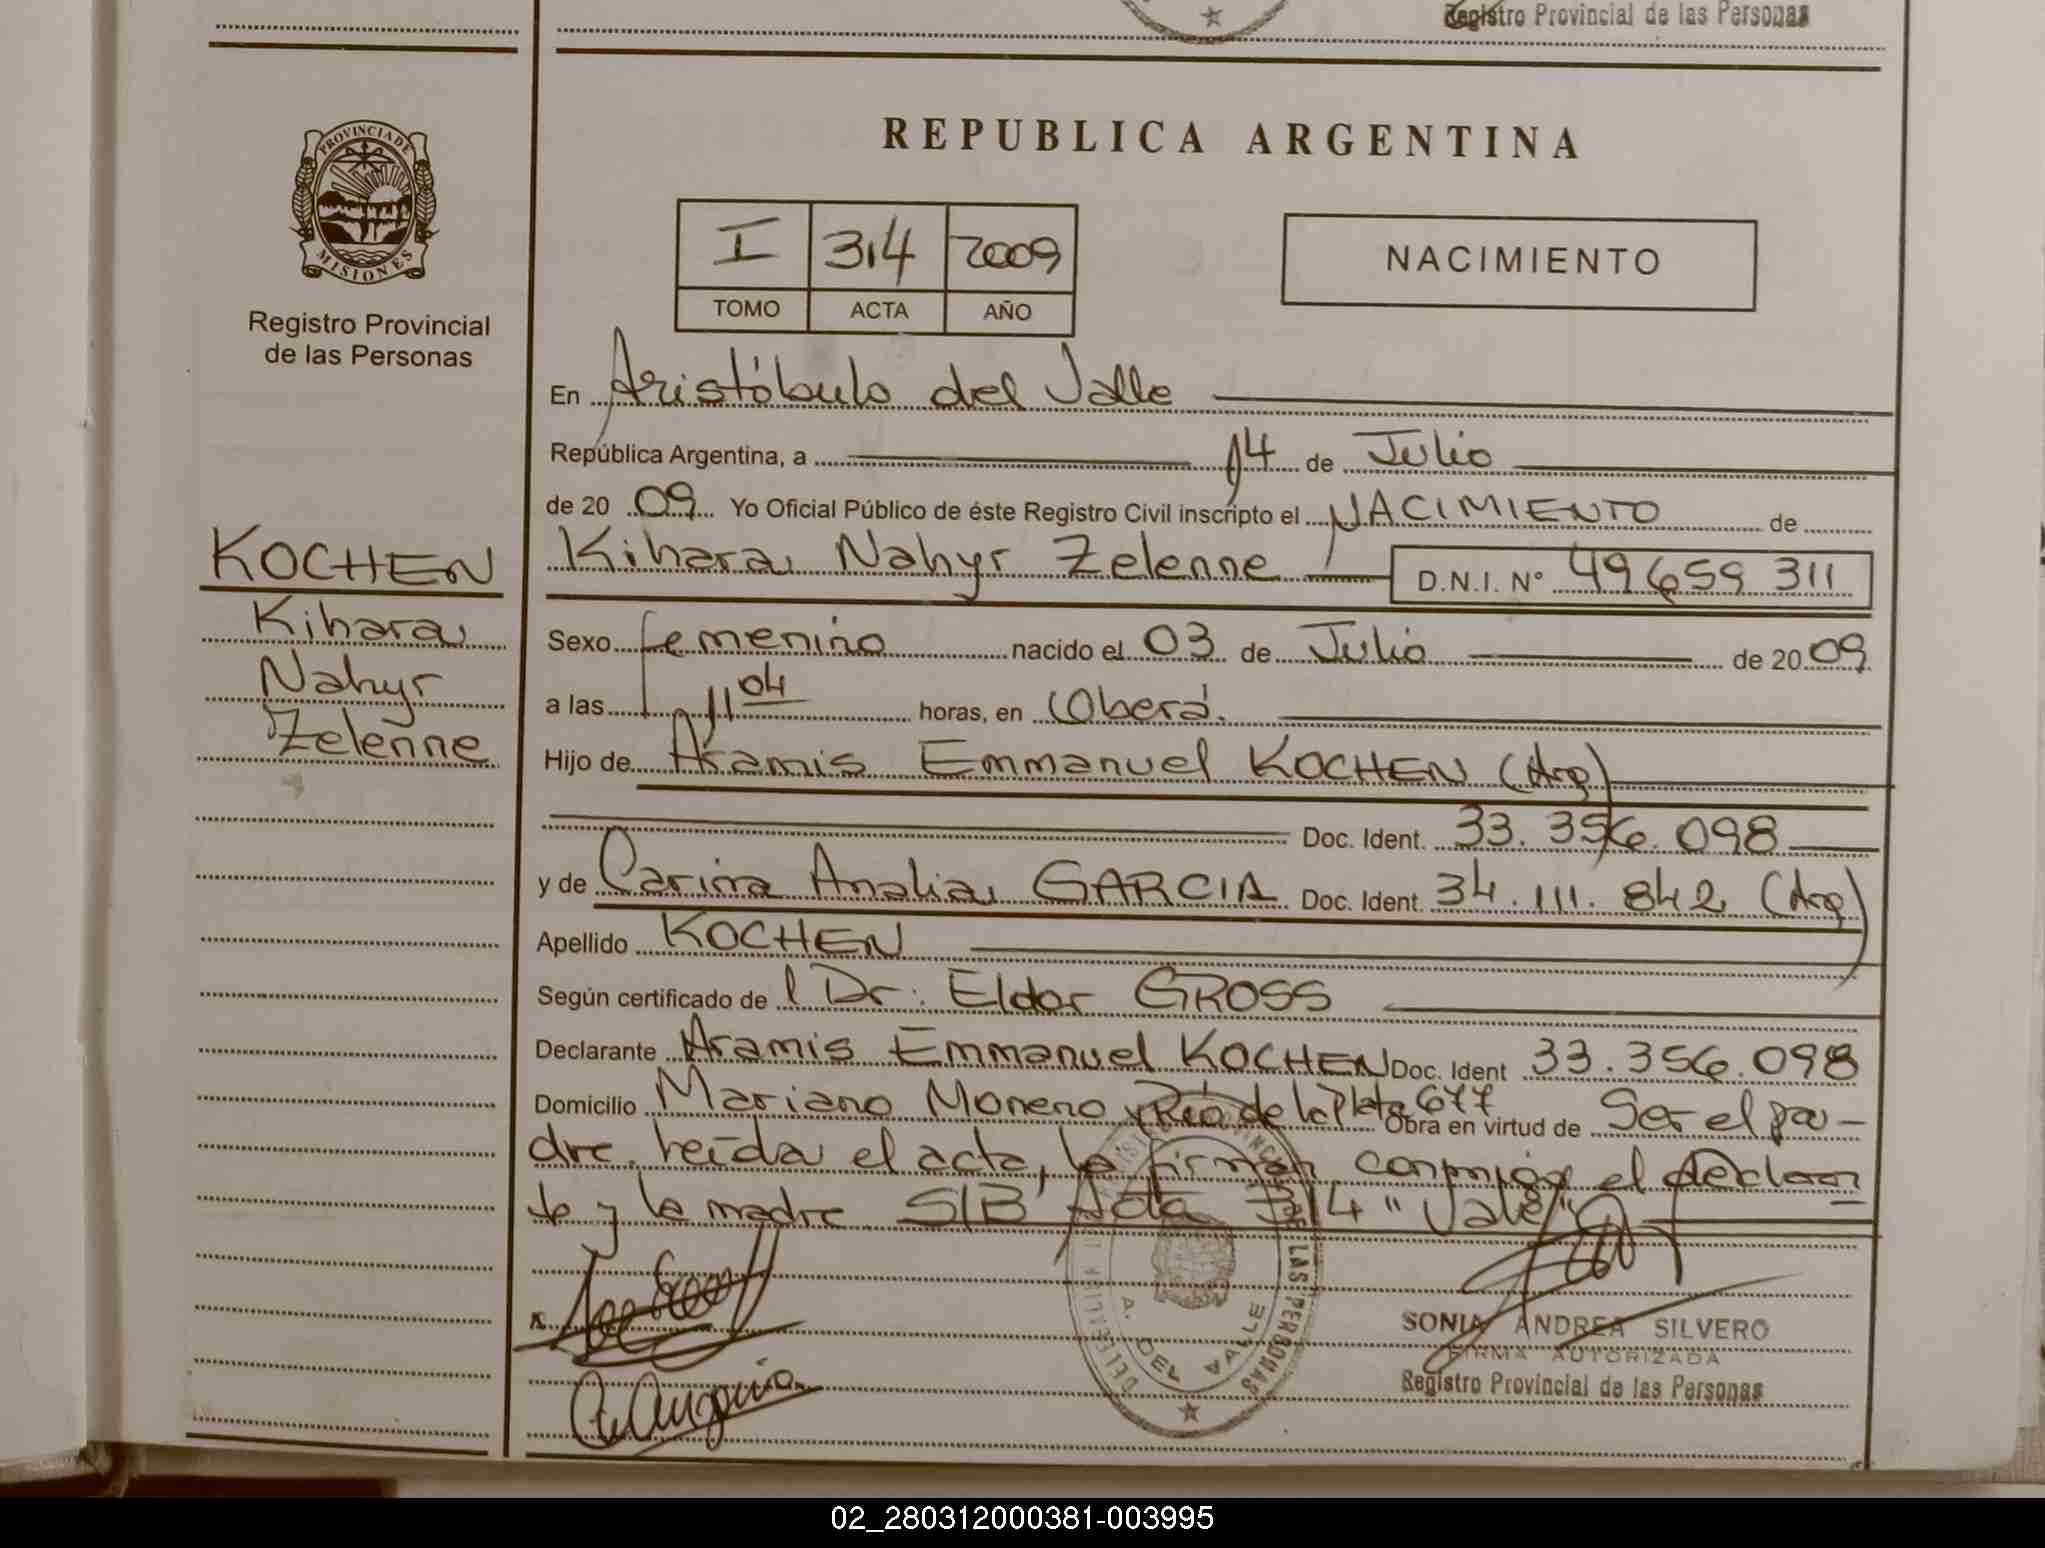 Registro Provincial de las Personas
REPUBLICA ARGENTINA
PROVINCIA DE
MISIONES
Registro Provincial
de las Personas
I 314 2009
TOMO ACTA AÑO
NACIMIENTO
En Aristóbulo del Valle
República Argentina, a 14 de Julio
de 20 09 Yo Oficial Público de éste Registro Civil inscripto el NACIMIENTO de
Kihara Nahyr Zelenne D.N.I. Nº 49659 311
KOCHEN
Kihara
Nahyr
Zelenne
Sexo femenino nacido el 03 de Julio de 20 09
a las 11 04 horas, en Oberá.
Hijo de Aramis Emmanuel KOCHEN (Arg)
Doc. Ident. 33.356.098
y de Carina Analia GARCIA Doc. Ident. 34.111.842 (Arg)
Apellido KOCHEN
Según certificado de l Dr: Eldor GROSS
Declarante Aramis Emmanuel KOCHEN Doc. Ident 33.356.098
Domicilio Mariano Moreno y Río de la Plata 677 Obra en virtud de Ser el pa-
dre. Leída el acta, la firman conmigo el declaran
te y la madre S/B Acta 314 "Vale"
LAS PERSONAS
A. DEL VALLE
SONIA ANDREA SILVERO
FIRMA AUTORIZADA
Registro Provincial de las Personas
02_280312000381-003995